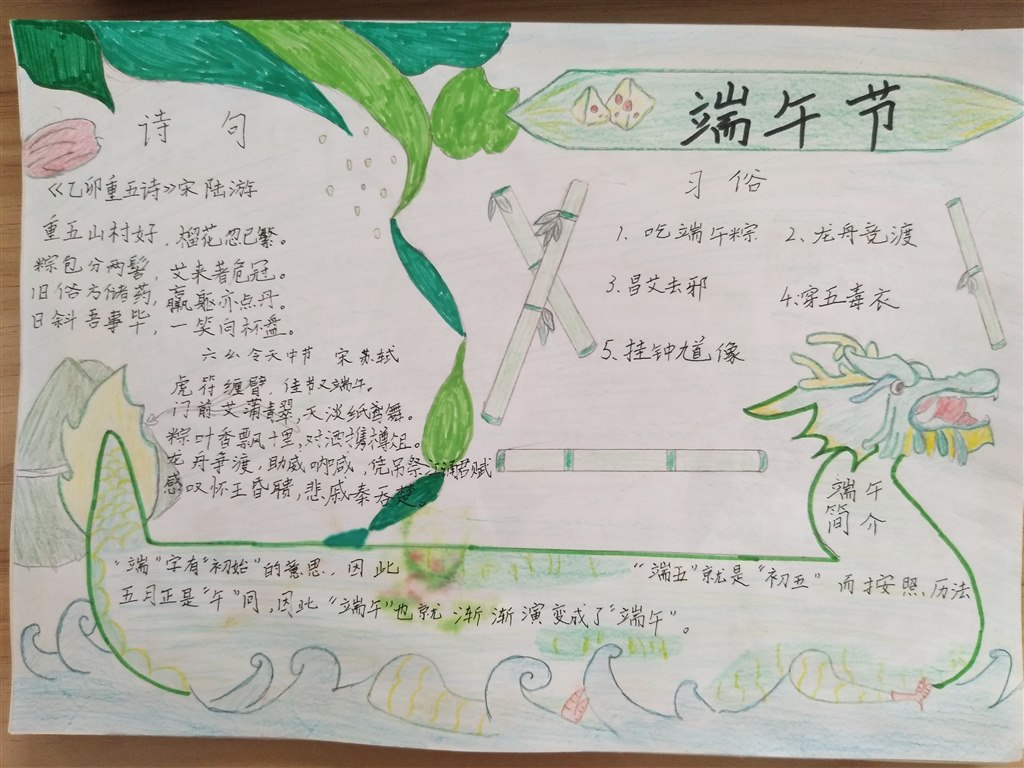 端午节
诗句
《乙卯重五诗》宋 陆游
重五山村好，榴花忽已繁。
粽包分两髻，艾束著危冠。
旧俗方储药，羸躯亦点丹。
日斜吾事毕，一笑向杯盘。
六幺令天中节 宋 苏轼
虎符缠臂，佳节又端午。
门前艾蒲青翠，天淡纸鸢舞。
粽叶香飘十里，对酒携樽俎。
龙舟争渡，助威呐喊，凭吊祭江诵君赋
感叹怀王昏聩，悲戚秦吞楚。
习俗
1、吃端午粽 2、龙舟竞渡
3.昌艾去邪
4.穿五毒衣
5.挂钟馗像
端午
简介
“端”字有“初始”的意思，因此“端五”就是“初五”而按照历法
五月正是“午”间，因此“端午”也就渐渐演变成了“端午”。